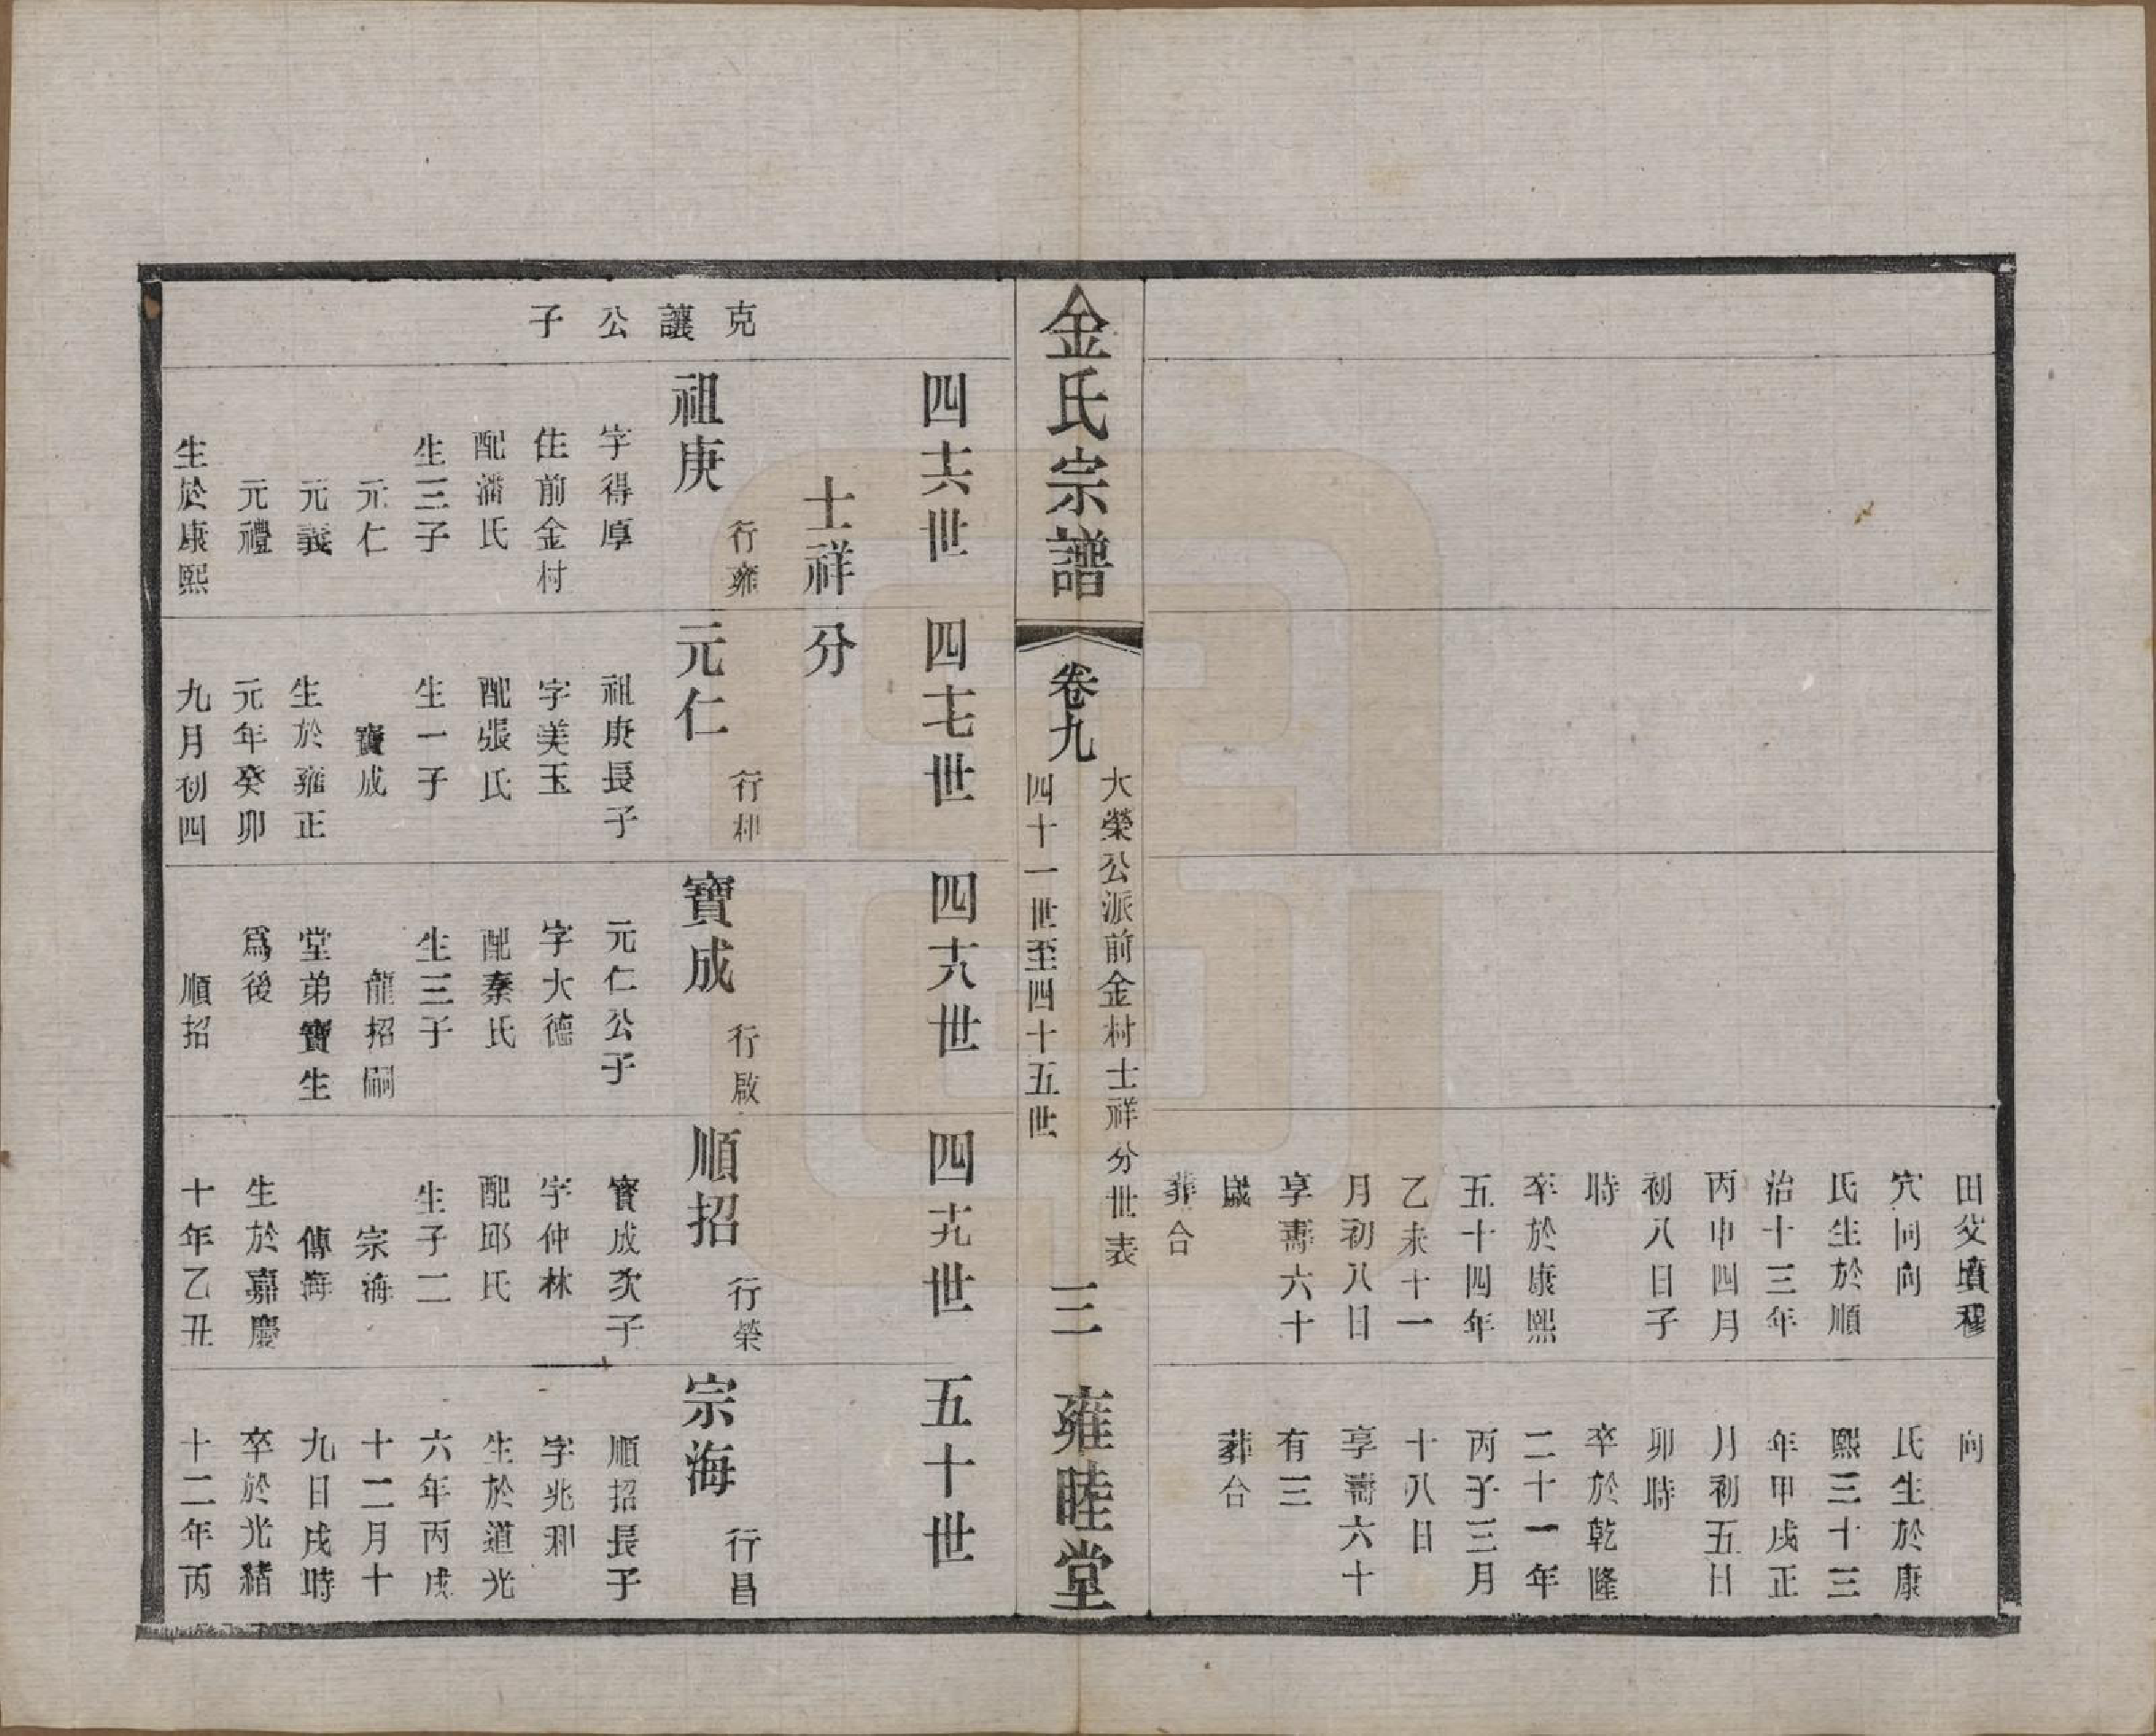 田父墳穆
穴同向
氏生於順
治十三年
丙申四月
初八日子
時
卒於康熙
五十四年
乙未十一
月初八日
享壽六十
歲
葬合
向
氏生於康
熙三十三
年甲戌正
月初五日
卯時
卒於乾隆
二十一年
丙子三月
十八日
享壽六十
有三
葬合
金氏宗譜
卷九
大榮公派前金村士祥分世表
四十一世至四十五世
三
雍睦堂
四六世
四七世
四八世
四九世
五十世
士祥分
克讓公子
祖庚
行雍
字得厚
住前金村
配潘氏
生三子
元仁
元義
元禮
生於康熙
元仁
行和
祖庚長子
字美玉
配張氏
生一子
寶成
生於雍正
元年癸卯
九月初四
寶成
行啟
元仁公子
字大德
配秦氏
生三子
龍招嗣
堂弟寶生
爲後
順招
順招
行榮
寶成次子
字仲林
配邱氏
生子二
宗海
傳海
生於嘉慶
十年乙丑
宗海
行昌
順招長子
字兆和
生於道光
六年丙戌
十二月十
九日戌時
卒於光緒
十二年丙